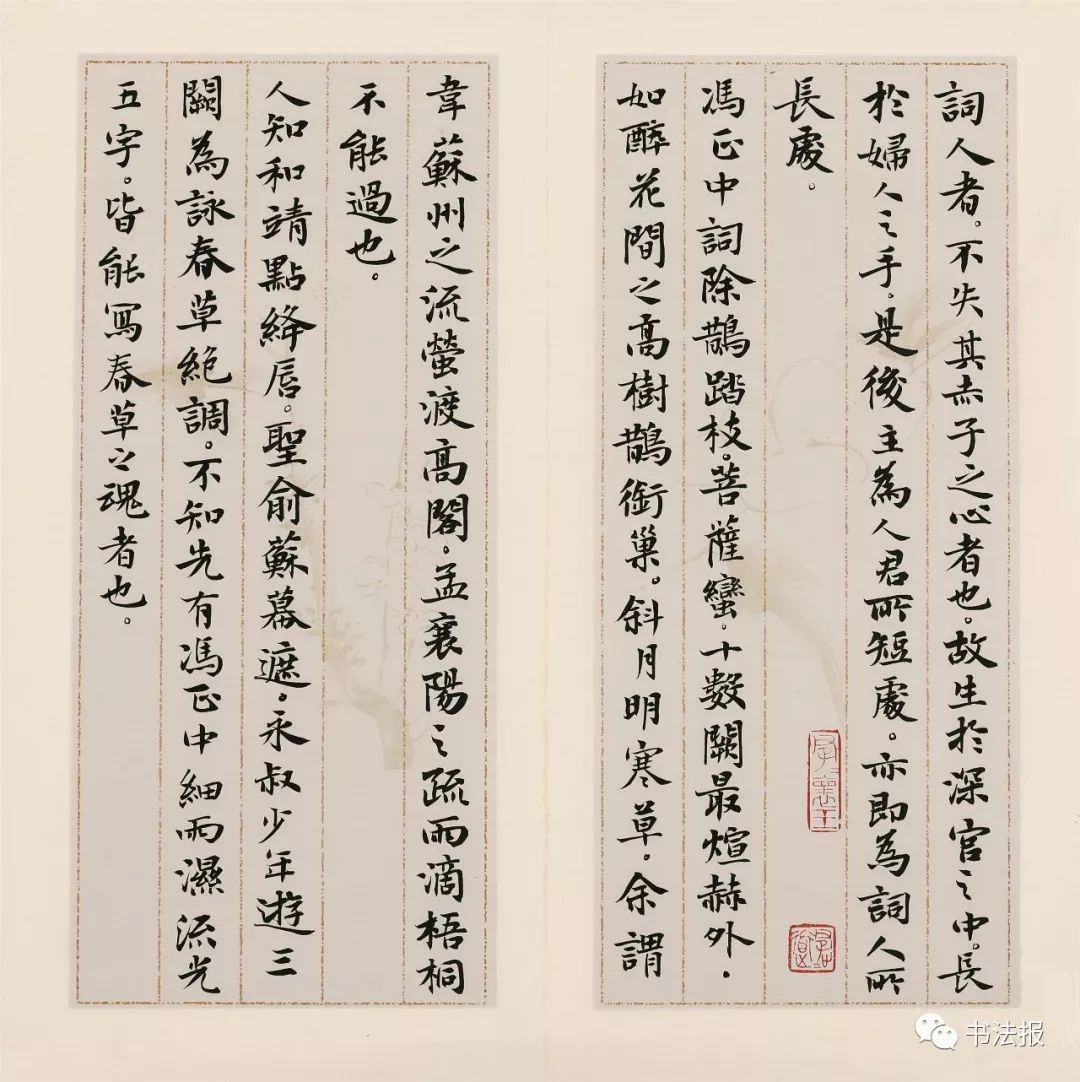 詞人者。不失其赤子之心者也。故生於深宫之中。長
於婦人之手。是後主為人君所短處。亦即為詞人所
長處。
馮正中詞除鵲踏枝。菩薩蠻。十數闋最煊赫外。
如醉花間之高樹鵲銜巢。斜月明寒草。余謂
韋蘇州之流螢渡高閣。孟襄陽之疏雨滴梧桐
不能過也。
人知和靖點絳唇。聖俞蘇幕遮。永叔少年遊三
闋為詠春草絶調。不知先有馮正中細雨濕流光
五字。皆能寫春草之魂者也。
书法报